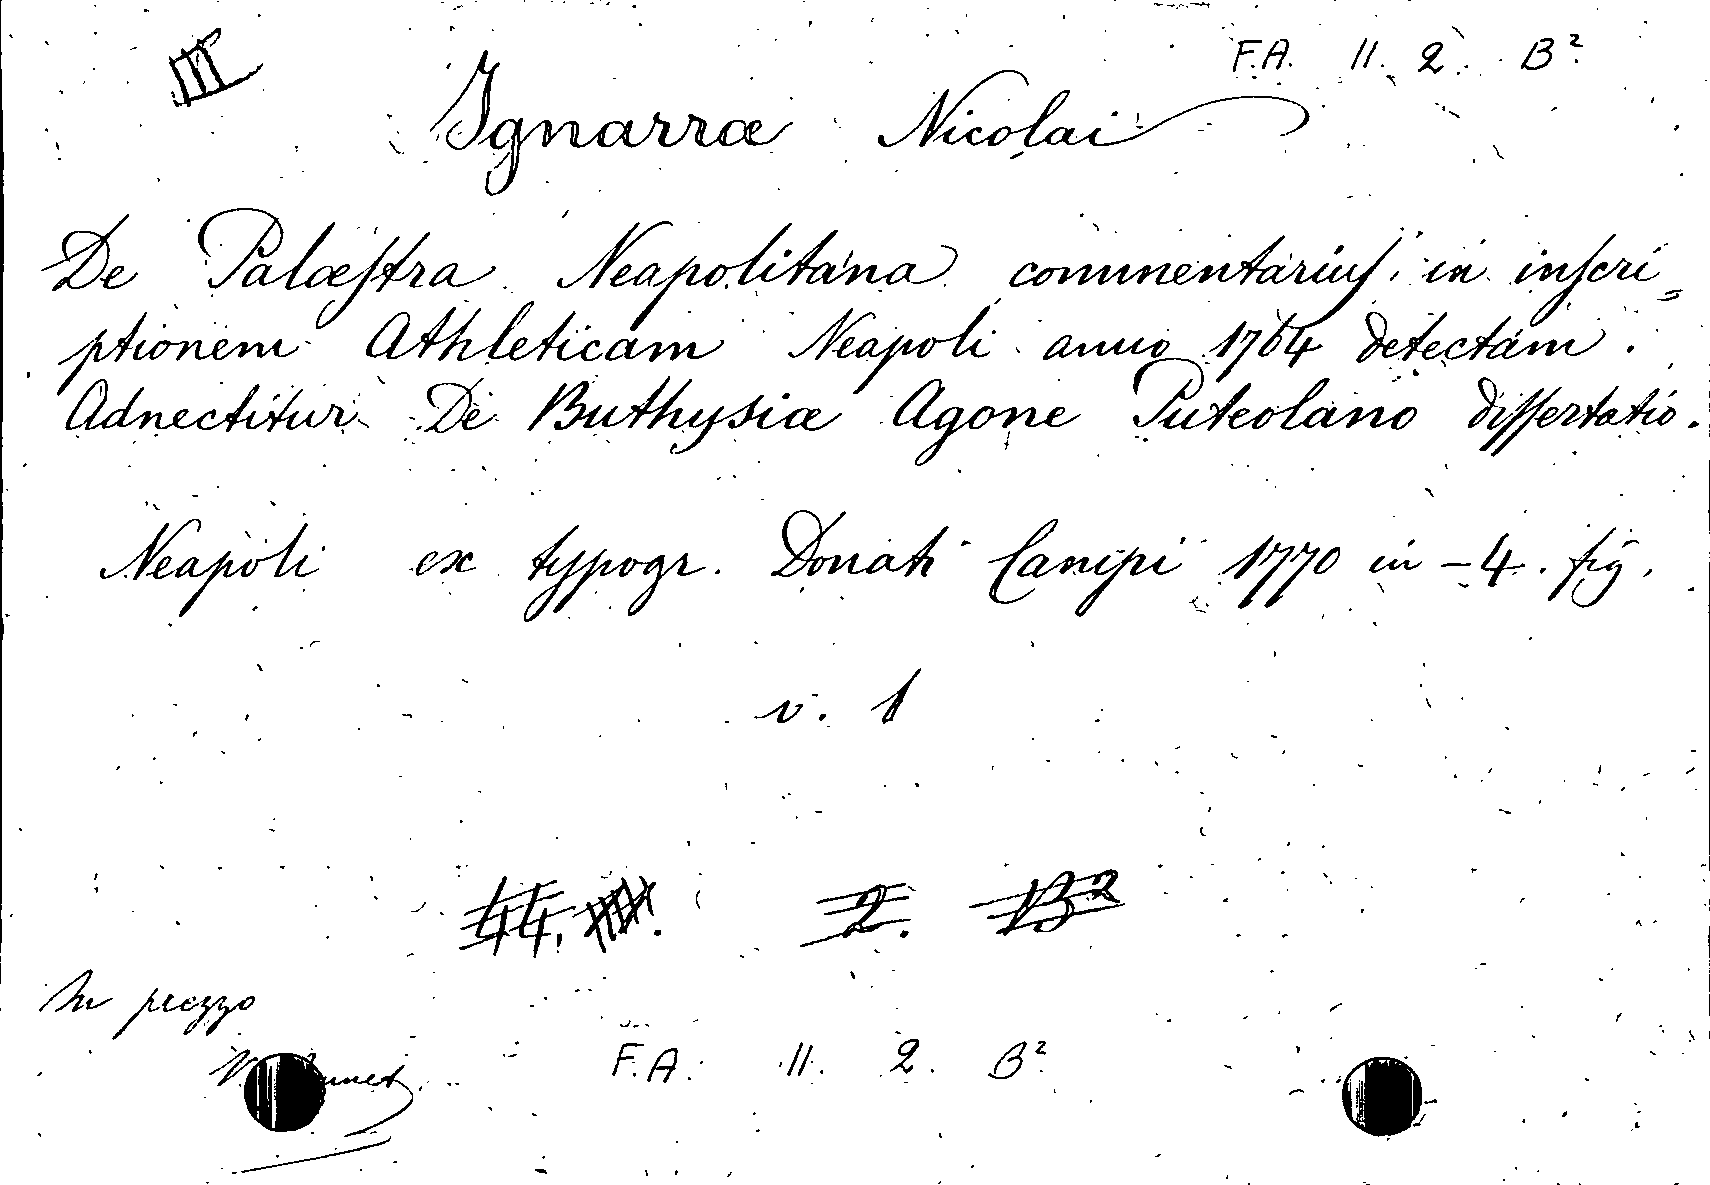 F.A. 11. 2. B²
Ignarræ Nicolai
De Palæstra Neapolitana commentarius in inscri=
ptionem Athleticam Neapoli anno 1764 detectam.
Adnectitur De Buthysiæ Agone Puteolano dissertatio.
Neapoli ex typogr. Donati Campi 1770 in-4. fig.
v. 1
44. 2. B²
In prezzo
F.A. 11. 2. B²